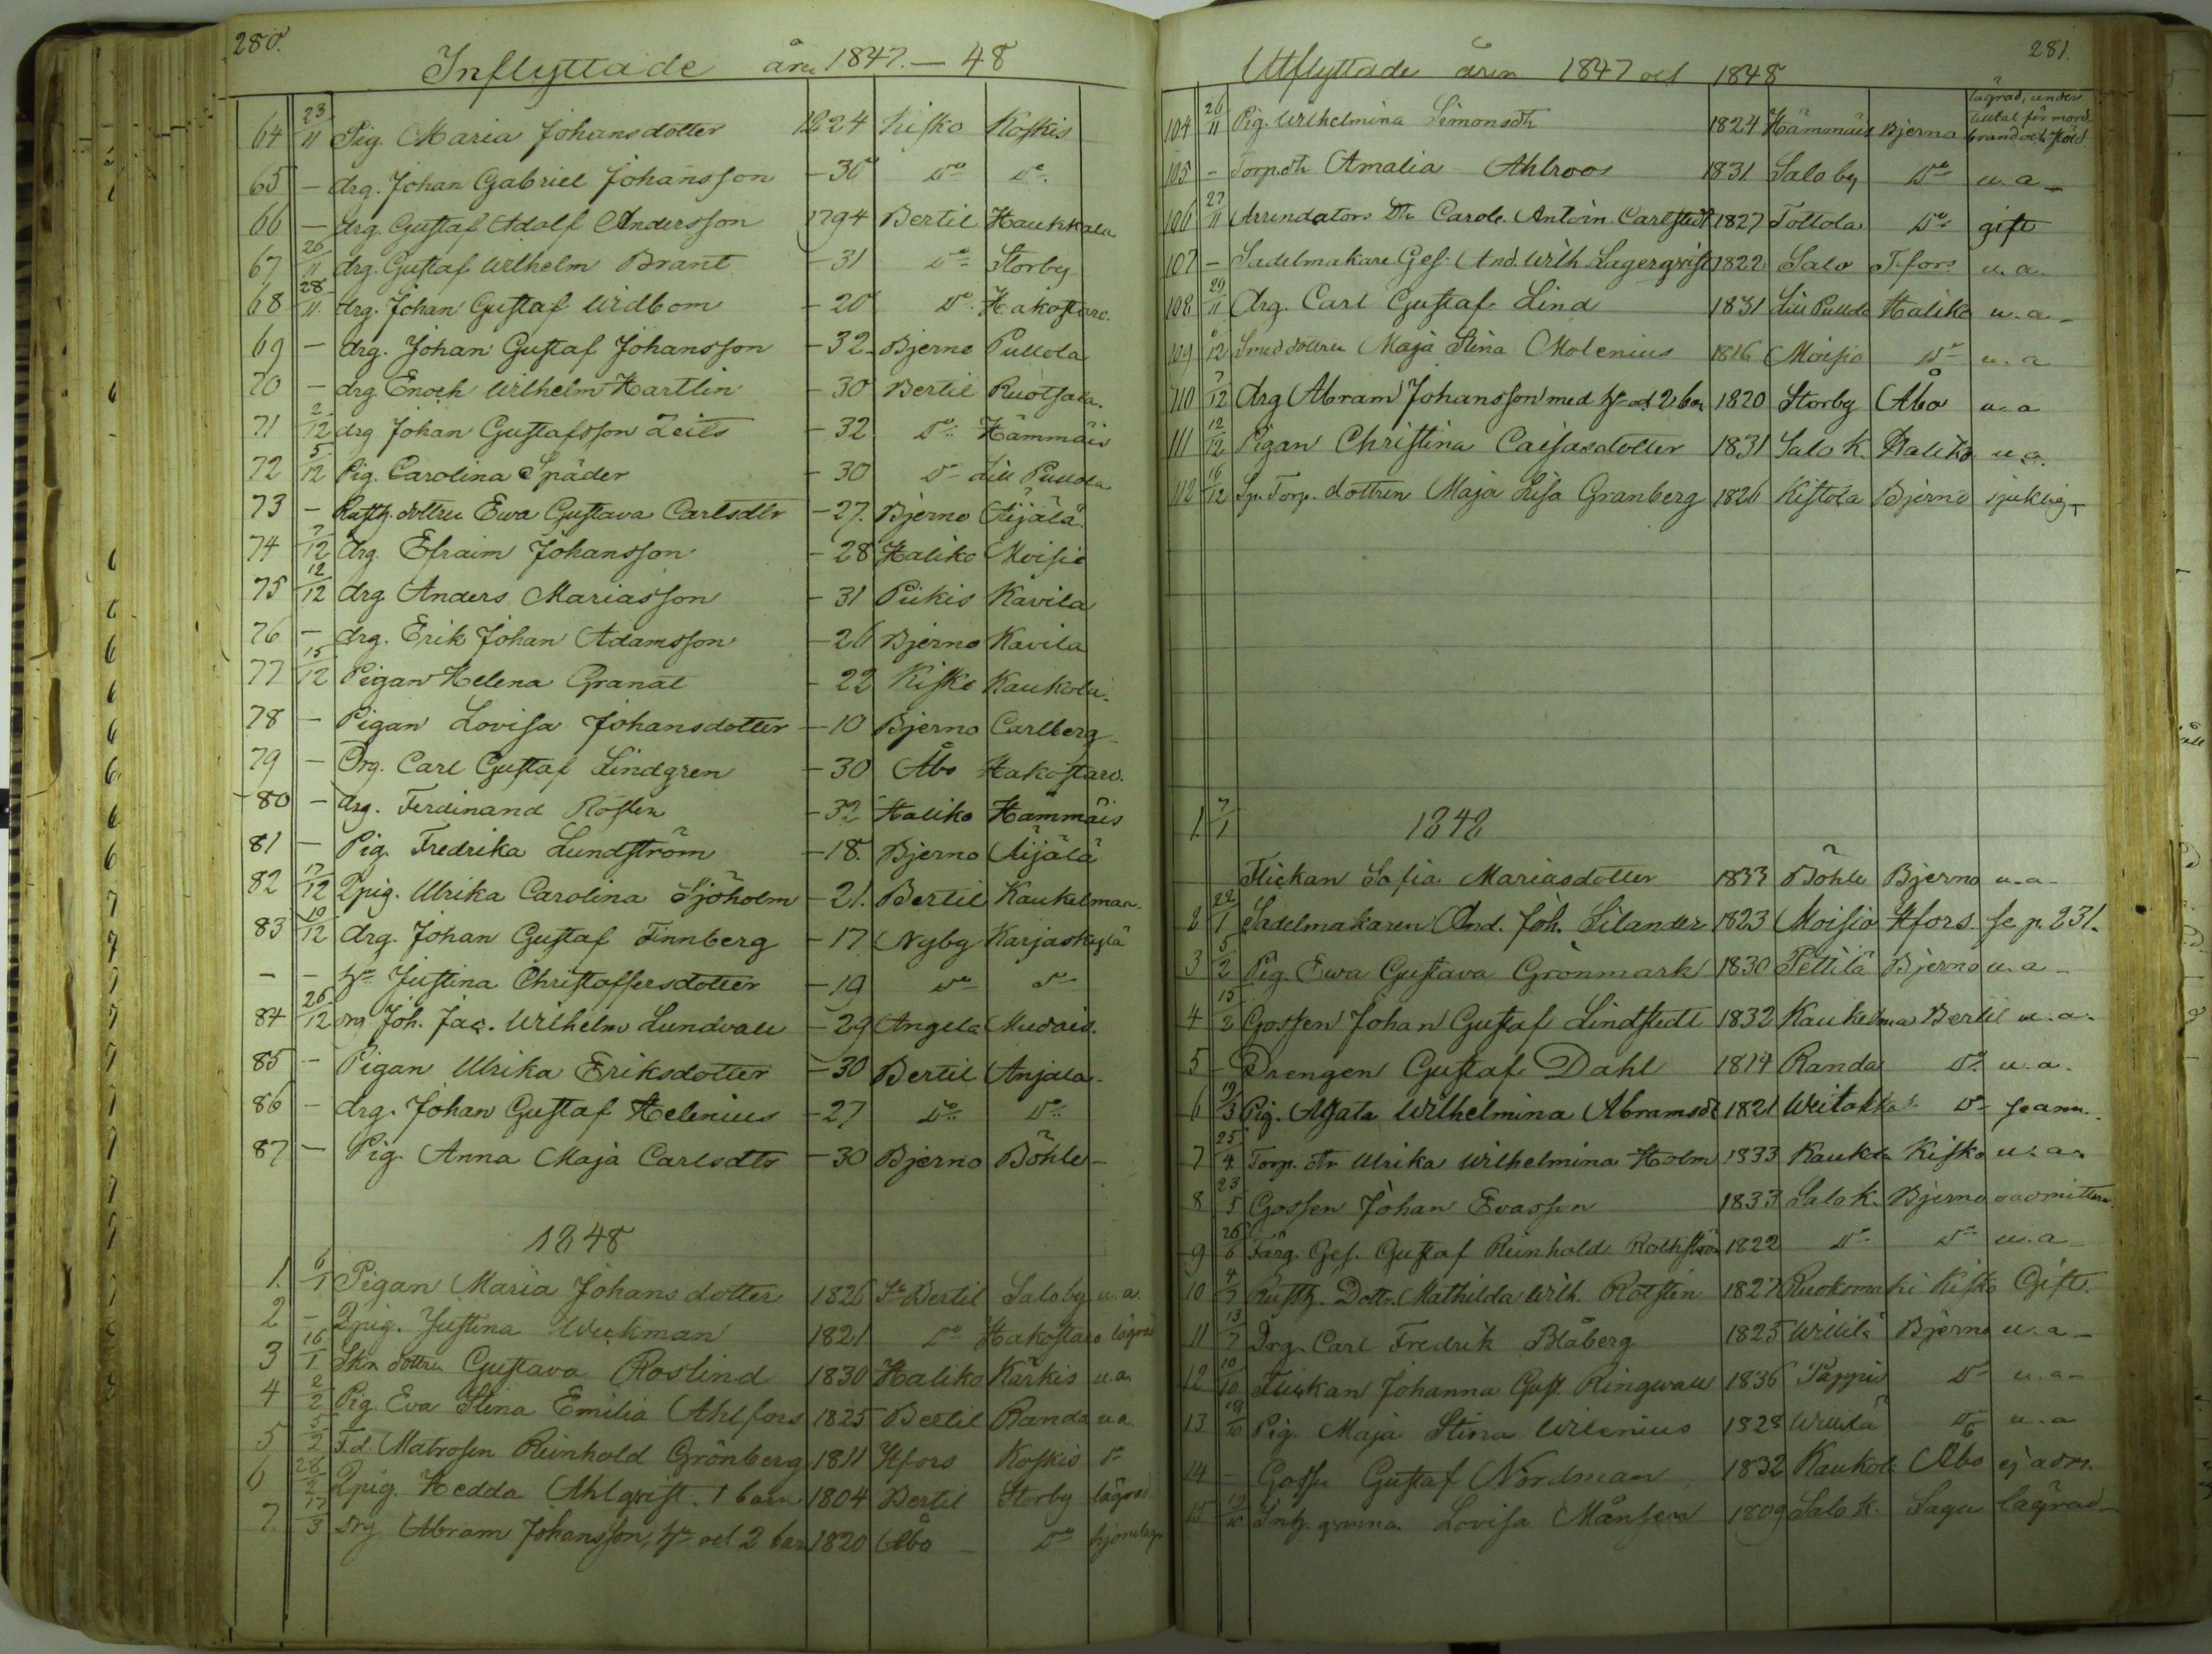 280.
Inflyttade åren 1847. — 48
64 23/11 Pig. Maria Johansdotter 1824 Kisko Koskis
65 — drg. Johan Gabriel Johansson — 30 Do Do
66 — drg. Gustaf Adolf Andersson 1794 Bertil Haukkala
67 26/11 drg. Gustaf Wilhelm Brant — 31 Do Storby
68 28/11 drg. Johan Gustaf Widbom — 20 Do Hakostaro.
69 — drg. Johan Gustaf Johansson — 32 Bjerno Pullola
70 — drg Enoch Wilhelm Hartlin — 30 Bertil Ruotsala.
71 2/12 drg Johan Gustafsson Zeits — 32 Do Hämmäis
72 5/12 Pig. Carolina Späder — 30 Do Lill Pullola
73 — Rusth. dottren Ewa Gustava Carlsdtr — 27. Bjerno Äijälä
74 7/12 Drg. Efraim Johansson — 28 Haliko Moisio
75 12/12 drg. Anders Mariasson — 31 Piikis Kavila
76 — drg. Erik Johan Adamsson — 26 Bjerno Kavila
77 15/12 Pigan Helena Granat — 22 Kisko Kaukola
78 — Pigan Lovisa Johansdotter — 10 Bjerno Carlberg
79 — Drg. Carl Gustaf Lindgren — 30 Åbo Hakostaro.
80 — drg. Ferdinand Rosten — 32 Haliko Hämmäis
81 — Pig. Fredrika Lundström — 18. Bjerno Äijälä
82 17/12 Qpig. Ulrika Carolina Sjöholm — 21. Bertil Kaukelmaa
83 19/12 drg. Johan Gustaf Finnberg — 17 Nyby Karjaskylä
— — hu Justina Christoffersdotter — 19 Do Do
84 26/12 drg Joh. Jac. Wilhelm Lundvall — 29 Angela Muvais.
85 — Pigan Ulrika Eriksdotter — 30 Bertil Anjala
86 — drg. Johan Gustaf Helenius — 27 Do Do
87 — Pig. Anna Maja Carlsdtr — 30 Bjerno Böhle
1848
1. 6/1 Pigan Maria Johansdotter 1826 St Bertil Saloby u.a.
2 — Qpig. Justina Wickman 1821 Do Hakostaro lägrad
3 16/1 Skn dottren Gustava Roslind 1830 Haliko Kärkis u.a.
4 2/2 Pig. Eva Stina Emilia Ahlfors 1825 Bertil Randa u.a.
5 5/2 F.d. Matrosen Reinhold Grönberg 1811 Hfors Koskis Do
6 28/2 Qpig. Hedda Ahlqvist. 1 barn 1804 Bertil Storby lägrad
7. 17/3 Drg Abram Johansson, hu och 2 barn 1820 Åbo — Do
281.
Utflyttade åren 1847 och 1848
104 26/11 Pig. Wilhelmina Simonsdtr 1824 Hämmäis Bjerno lägrad, under tilltal för mordbrand och stöld
105 — Torp.dtr Amalia Ahlroos 1831 Salo by Do u.a.
106 27/11 Arrendators Dtr Carol. Antoin. Carlstedt 1827 Tottola Do gift
107 — Sadelmakare Ges. And. Wilh. Lagerqvist 1822 Salo T.fors u.a.
108 29/11 Drg. Carl Gustaf Lind 1831 Lill Pullola Haliko u.a.
109 6/12 Smed dottren Maja Stina Molenius 1816 Moisio Do u.a
110 7/12 Drg Abram Johansson med hu och 2 barn 1820 Storby Åbo u.a
111 12/12 Pigan Christina Caisasdotter 1831 Salo K. Haliko u.a.
112 16/12 Sp. Torp. dottren Maja Lisa Granberg 1826 Kistola Bjerno sjuklig
1848
1 7/1 Flickan Sofia Mariasdotter 1833 Böhle Bjerno u.a
2 22/1 Sadelmakaren And. Joh. Silander 1823 Moisio Hfors. se p. 231.
3 5/2 Pig. Ewa Gustava Grönmark 1830 Pettilä Bjerno u.a
4 15/2 Gossen Johan Gustaf Lindstedt 1832 Kaukelma Bertil u.a.
5 — Drengen Gustaf Dahl 1814 Randa Do u.a.
6 19/3 Pig. Agata Wilhelmina Abramsdr 1821 Weitakka Do se anm.
7 25/4 Torp. dtr Ulrika Wilhelmina Holm 1833 Kaukola Kisko u.a.
8 23/5 Gossen Johan Evasson 1833 Salo K. Bjerno oadmitterad
9 26/6 Färg. Ges. Gustaf Reinhold Rothström 1822 Do Do u.a
10 4/7 Rusth. Dottr. Mathilda Wilh. Rotsten 1827 Ruoksmaki Kisko Gift.
11 13/7 Drg. Carl Fredrik Blåberg 1825 Wiilä Bjerno u.a
12 10/10 Flickan Johanna Gust. Ringwall 1836 Pappis Do u.a
13 18/10 Pig. Maja Stina Wilenius 1828 Do u.a
14 — Gosse Gustaf Nordman 1832 Kaukol. Åbo ej adm.
15 19/10 Inh. qvinna Lovisa Månsen 1809 Salo K. Sagu lägrad